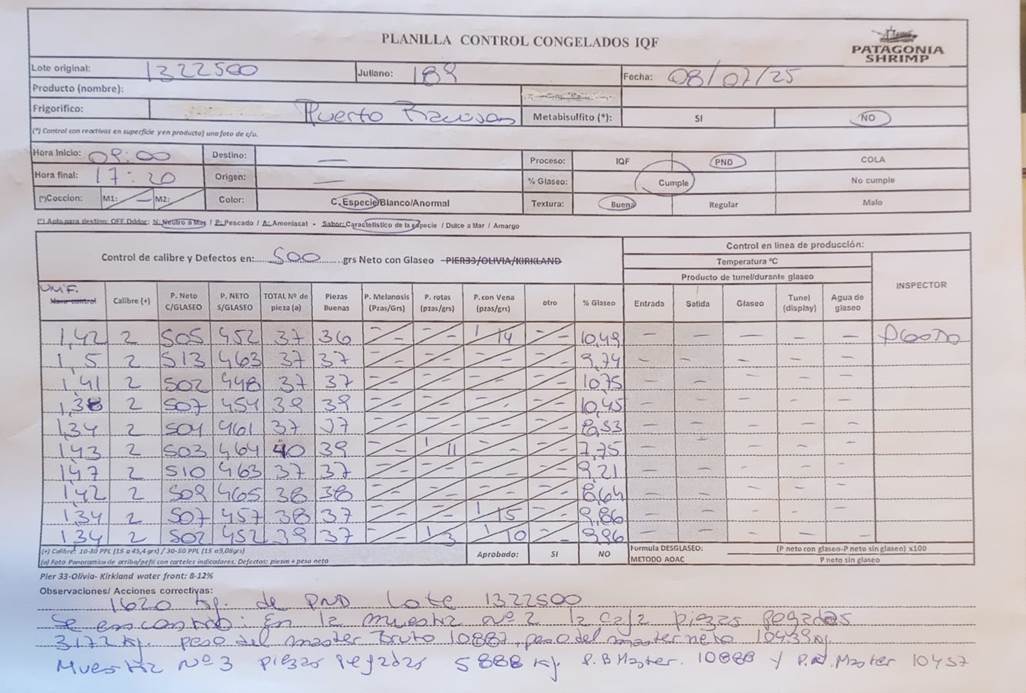 PLANILLA CONTROL CONGELADOS IQF
PATAGONIA
SHRIMP
Lote original: 1322500 Juliano: 189 Fecha: 08/07/25
Producto (nombre):
Frigorífico: Puerto Metabisulfito (*): SI NO
(*) Control con reactivos en superficie y en producto) una foto de c/u.
Hora Inicio: 09:00 Destino: — Proceso: IQF PND COLA
Hora final: 17:20 Origen: — % Glaseo: Cumple No cumple
(*)Coccion: M1: — M2: Color: C. Especie/Blanco/Anormal Textura: Buena Regular Malo
(*) Apto para destino: OFF Oddor: N: Neutro a Mar / P: Pescado / A: Amoniacal - Sabor: Característico de la especie / Dulce a Mar / Amargo
Control de calibre y Defectos en: 500 grs Neto con Glaseo PIER33/OLIVIA/KIRKLAND
Control en linea de producción:
Temperatura °C
Producto de tunel/durante glaseo
UNIF.
Calibre (+) P. Neto C/GLASEO P. NETO S/GLASEO TOTAL Nº de pieza (a) Piezas Buenas P. Melanosis (Pzas/Grs) P. rotas (pzas/grs) P. con Vena (pzas/grs) otro % Glaseo Entrada Salida Glaseo Tunel (display) Agua de glaseo INSPECTOR
1,42 2 505 452 37 36 – – – – 1 14 – – 10,49 – – – – –
1,5 2 513 463 37 37 – – – – – – – – – – – – –
1,41 2 502 448 37 37 – – – – – – – – 10,75 – – – – –
1,38 2 507 454 39 39 – – – – – – – – 10,45 – – – – –
1,34 2 504 461 37 37 – – – – – – – – – – – – –
1,43 2 503 464 40 39 – – 1 11 – – – – 7,75 – – – – –
1,47 2 510 463 37 37 – – – – – – – – 9,21 – – – – –
1,42 2 509 465 38 38 – – – – – – – – 8,64 – – – – –
1,34 2 507 457 38 37 – – – – 1 15 – – 9,86 – – – – –
1,34 2 502 452 39 37 – – 1 3 1 10 – – 9,96 – – – – –
(+) Calibre: 10-30 PPL (15 a 45,4 grs) / 30-50 PPL
Aprobado: SI NO
Formula DESGLASEO: (P neto con glaseo-P neto sin glaseo) x100
METODO AOAC P neto sin glaseo
(a) Foto Panoramica de arriba/perfil con carteles indicadores. Defectos: piezas + peso neto
Pier 33-Olivia- Kirkland water front: 8-12%
Observaciones/ Acciones correctivas:
1620 Kg. de PND Lote 1322500
Se encontro: En la muestra nº 2 la caja piezas pegadas
3.172 Kg. peso del master Bruto 10887, peso del master neto 10439 Kg
Muestra Nº 3 piezas pegadas 5888 Kg. P.B Master. 10888 y P.N. Master 10457